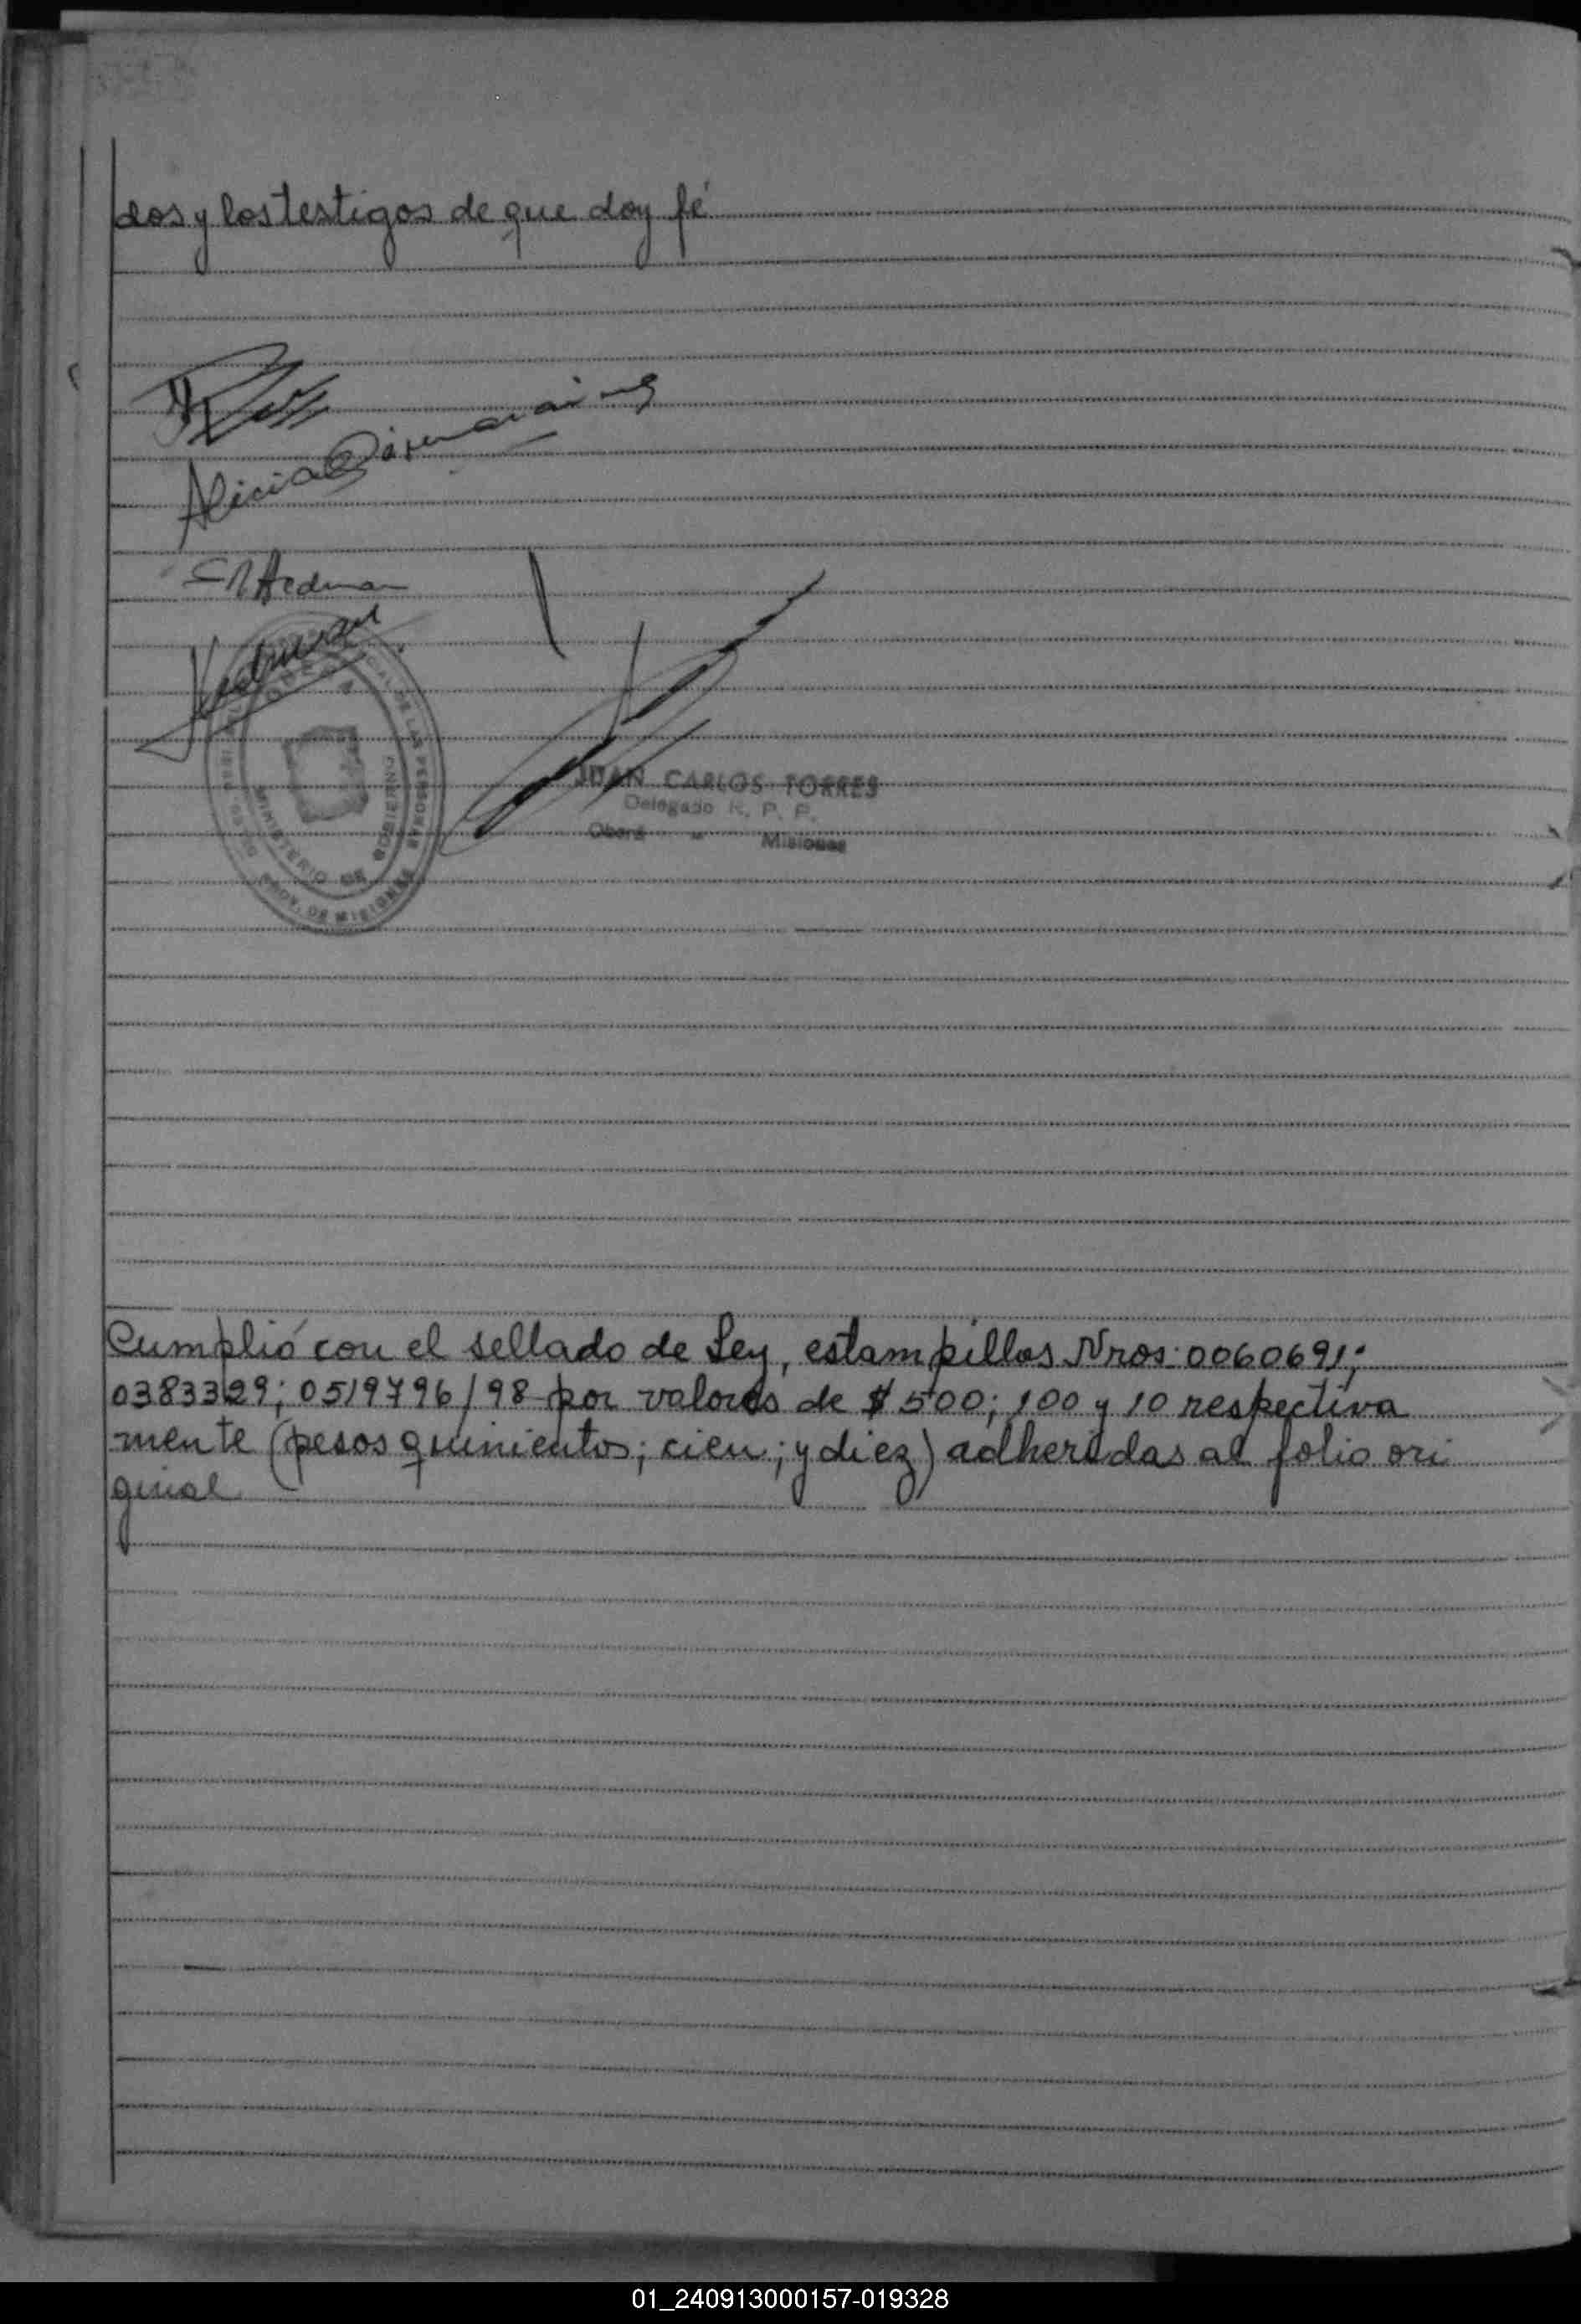 dos y los testigos de que doy fé
Alicia
JUAN CARLOS TORRES
Delegado R. P. P.
Oberá - Misiones
MINISTERIO DE GOBIERNO
PROV. DE MISIONES
DE LAS PERSONAS
Cumplió con el sellado de Ley, estampillas Nros: 0060691;
0383329; 0519796/98 por valores de $ 500; 100 y 10 respectiva
mente (pesos quinientos; cien; y diez) adheridas al folio ori
ginal
01_240913000157-019328